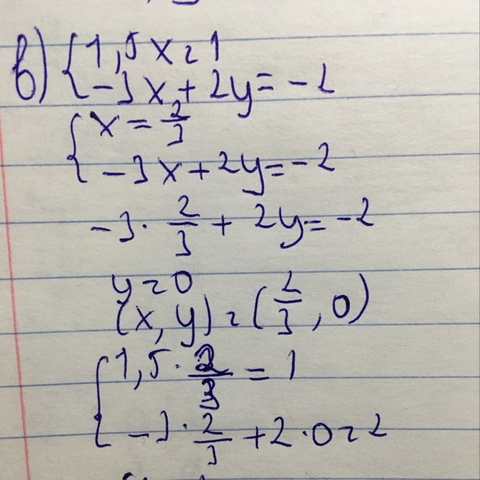 в) { 1,5x = 1
{ -3x + 2y = -2
{ x = 2/3
{ -3x + 2y = -2
-3 · 2/3 + 2y = -2
y = 0
(x, y) = (2/3, 0)
{ 1,5 · 2/3 = 1
{ -3 · 2/3 + 2 · 0 = 2